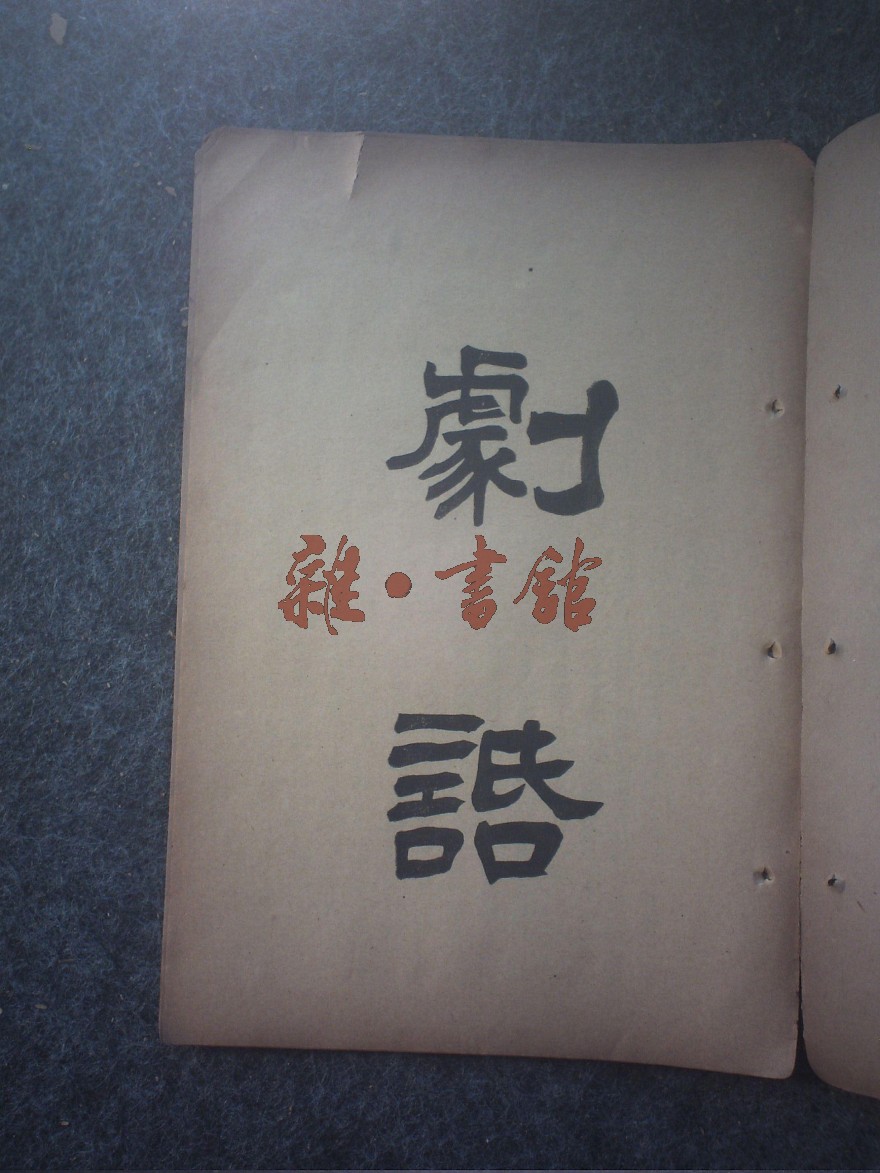 劇
雜·書館
話